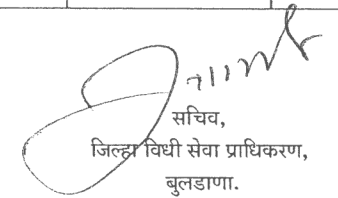 सचिव,
जिल्हा विधी सेवा प्राधिकरण,
बुलडाणा.